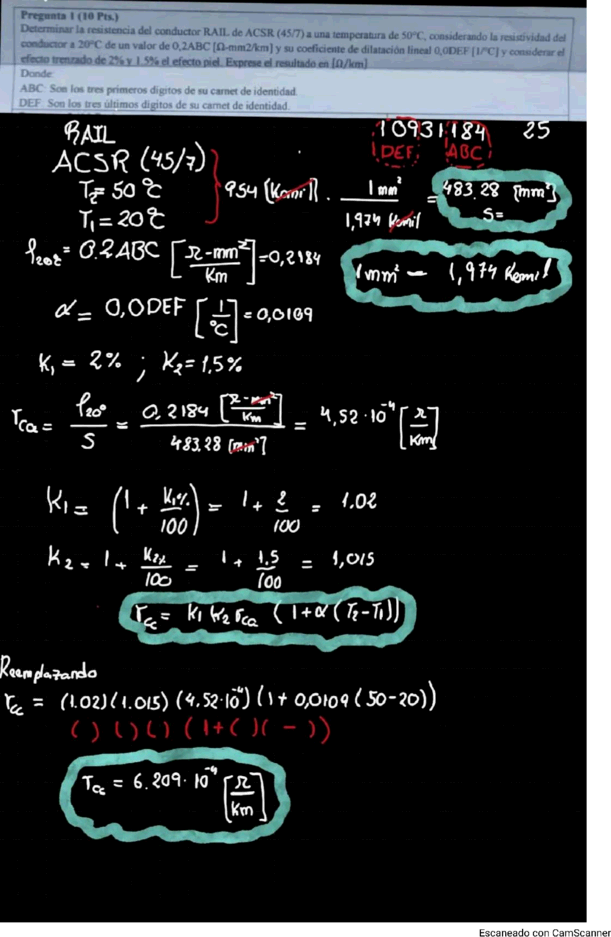 Pregunta 1 (10 Pts.)
Determinar la resistencia del conductor RAIL de ACSR (45/7) a una temperatura de 50°C, considerando la resistividad del
conductor a 20°C de un valor de 0,2ABC [Ω-mm2/km] y su coeficiente de dilatación lineal 0,0DEF [1/°C] y considerar el
efecto trenzado de 2% y 1.5% el efecto piel. Exprese el resultado en [Ω/km]
Donde
ABC: Son los tres primeros digitos de su carnet de identidad.
DEF: Son los tres últimos digitos de su carnet de identidad.
RAIL
10931184 25
DEF ABC
ACSR (45/7)
T2 = 50 °C
T1 = 20 °C
954 [Kcmil] · 1 mm² / 1,974 Kcmil = 483.28 [mm²]
S=
ρ20° = 0.2ABC [Ω-mm²/Km] = 0,2184
1 mm² — 1,974 Kcmil
α = 0,0DEF [1/°C] = 0,0109
K1 = 2% ; K2 = 1,5%
rca = ρ20° / S = 0,2184 [Ω-mm²/Km] / 483.28 [mm²] = 4,52·10⁻⁴ [Ω/Km]
K1 = (1 + K1% / 100) = 1 + 2/100 = 1.02
K2 = 1 + K2% / 100 = 1 + 1.5/100 = 1,015
rcc = K1 K2 rca (1+α(T2-T1))
Reemplazando
rcc = (1.02)(1.015)(4.52·10⁻⁴)(1+0,0109(50-20))
( ) ( ) ( ) (1+( )( - ))
rcc = 6.209·10⁻⁴ [Ω/Km]
Escaneado con CamScanner